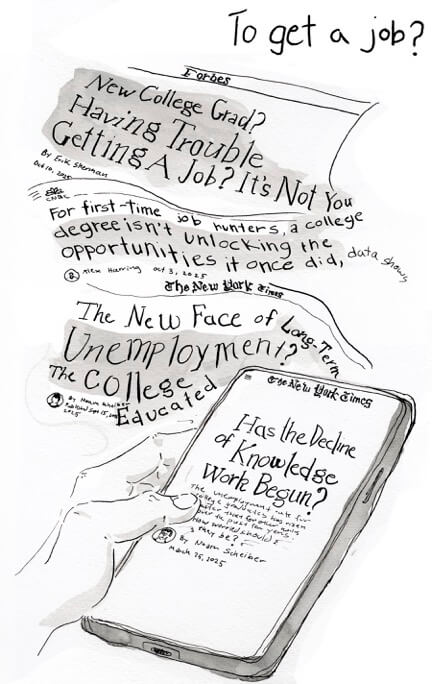 To get a job?
Forbes
New College Grad?
Having Trouble
Getting A Job? It's Not You
By Erik Sherman
Oct 10, 2025
CNBC
For first-time job hunters, a college
degree isn't unlocking the
opportunities it once did, data shows
Alex Harring Oct 3, 2025
The New York Times
The New Face of Long-Term
Unemployment?
The College
Educated
By Noam Scheiber
Published Sept 15, 2025
The New York Times
Has the Decline
of Knowledge
Work Begun?
The unemployment rate for
college graduates has risen
faster than for other workers
over the past few years
How worried should
they be?
By Noam Scheiber
March 25, 2025